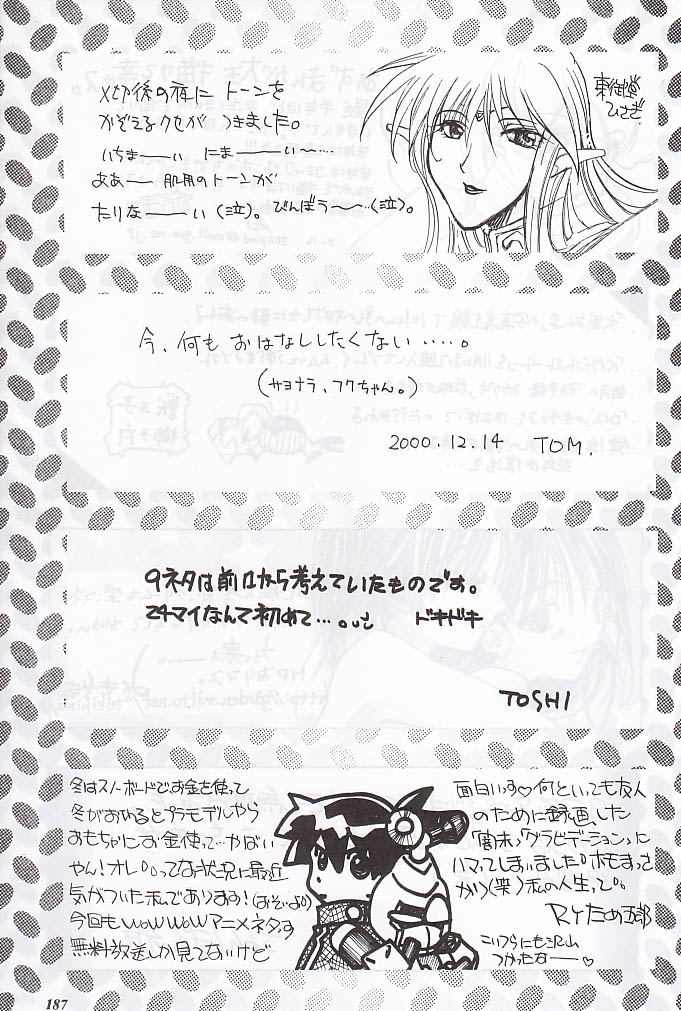 〆切後の夜に トーンを
かぞえるクセが つきました。
いちまーーい にまーーい〜…
ああー 肌用のトーンが
たりなーーい(泣)。びんぼう〜〜…(泣)。
東御堂
ひさぎ
今、何も おはなししたくない ‥‥。
(サヨナラ、フクちゃん。)
2000.12.14 TOM.
9ネタは前から考えていたものです。
24マイなんて初めて…。 ドキドキ
TOSHI
冬はスノーボードでお金を使って
冬がおわるとプラモデルやら
おもちゃにお金使って…やばい
やん!オレ。。ってな状況に最近
気がついた私であります!(おそいよ。)
今回もWOWWOWアニメネタっす
無料放送しか見てないけど
面白いっす♡何といっても友人
のために録画した
「闇末」「グラビテーション」に
ハマってしまいました。ホモまっさ
かり(笑)私の人生って。。
RYため五郎
こいつらにも沢山
つかったなー♡
187